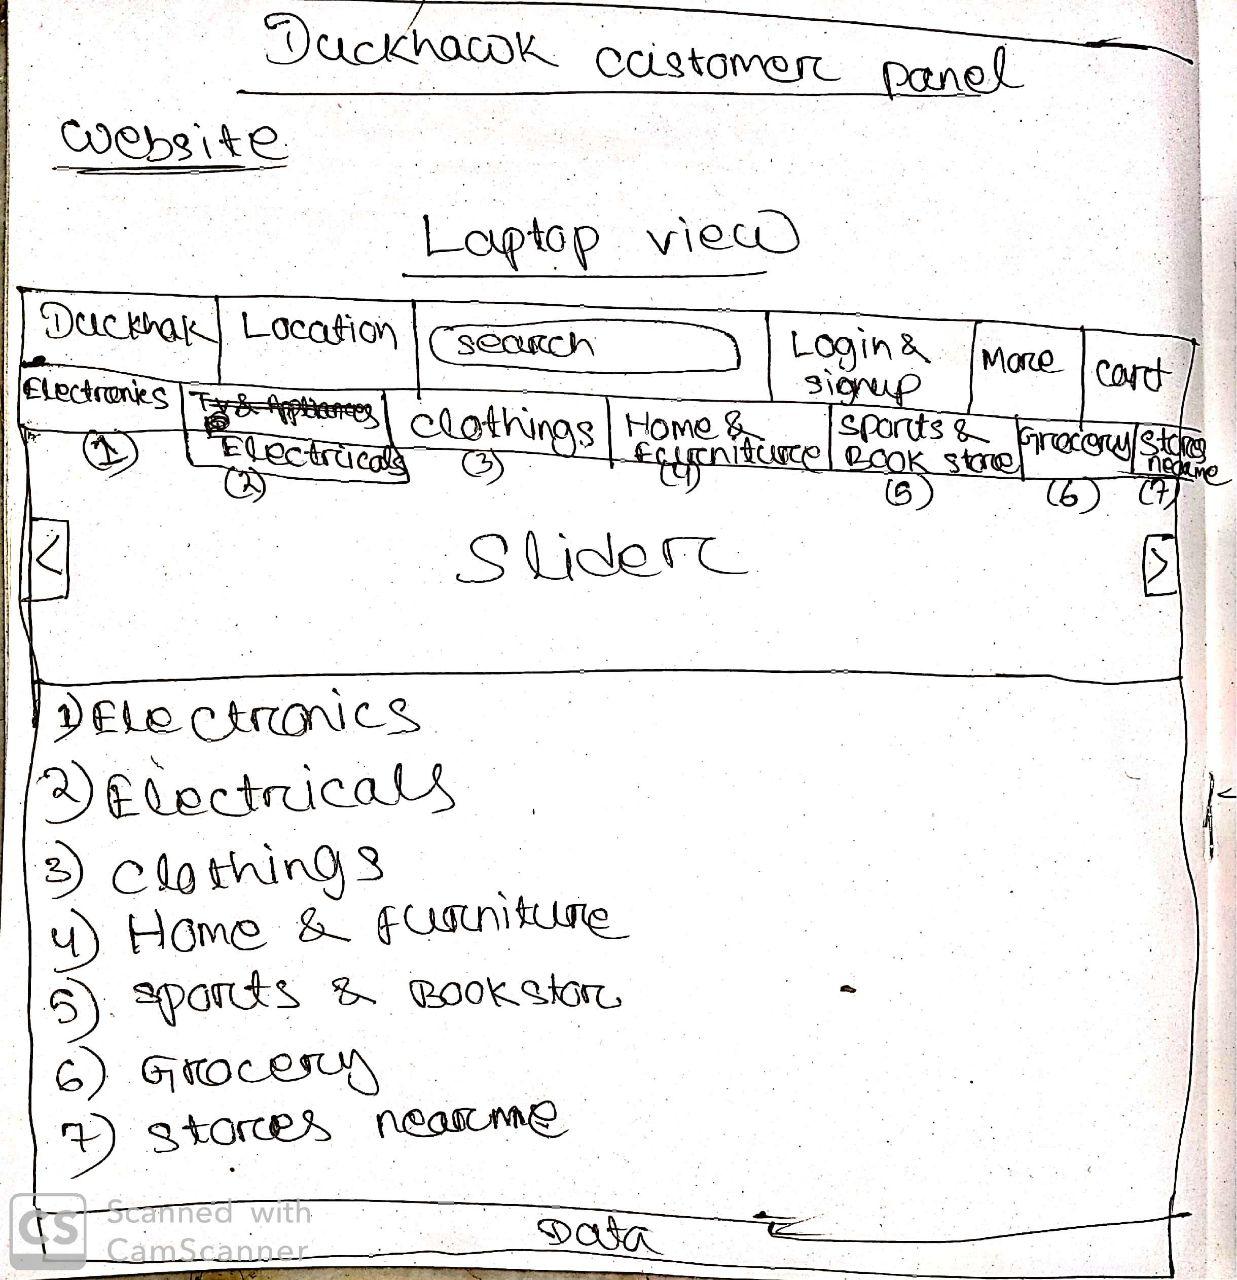 Duckhawk customer panel
website
Laptop view
Duckhak Location search Login & signup More cart
Electronics Tv & Appliances Electricals clothings Home & furniture sports & Book store Grocery stores near me
(1) (2) (3) (4) (5) (6) (7)
< Slider >
1) Electronics
2) Electricals
3) clothings
4) Home & furniture
5) sports & Book stor
6) Grocery
7) stores near me
Data
CS Scanned with
CamScanner